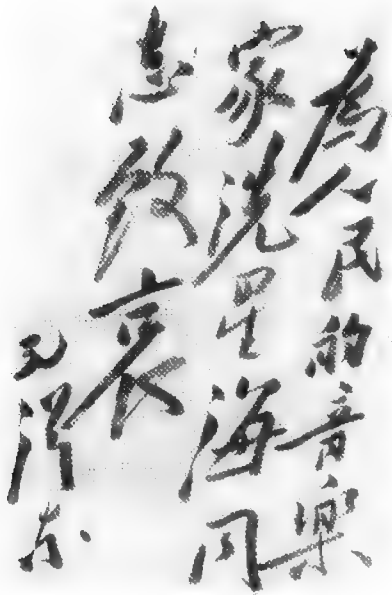 为人民的音樂
家洗星海同
志致哀
毛澤东